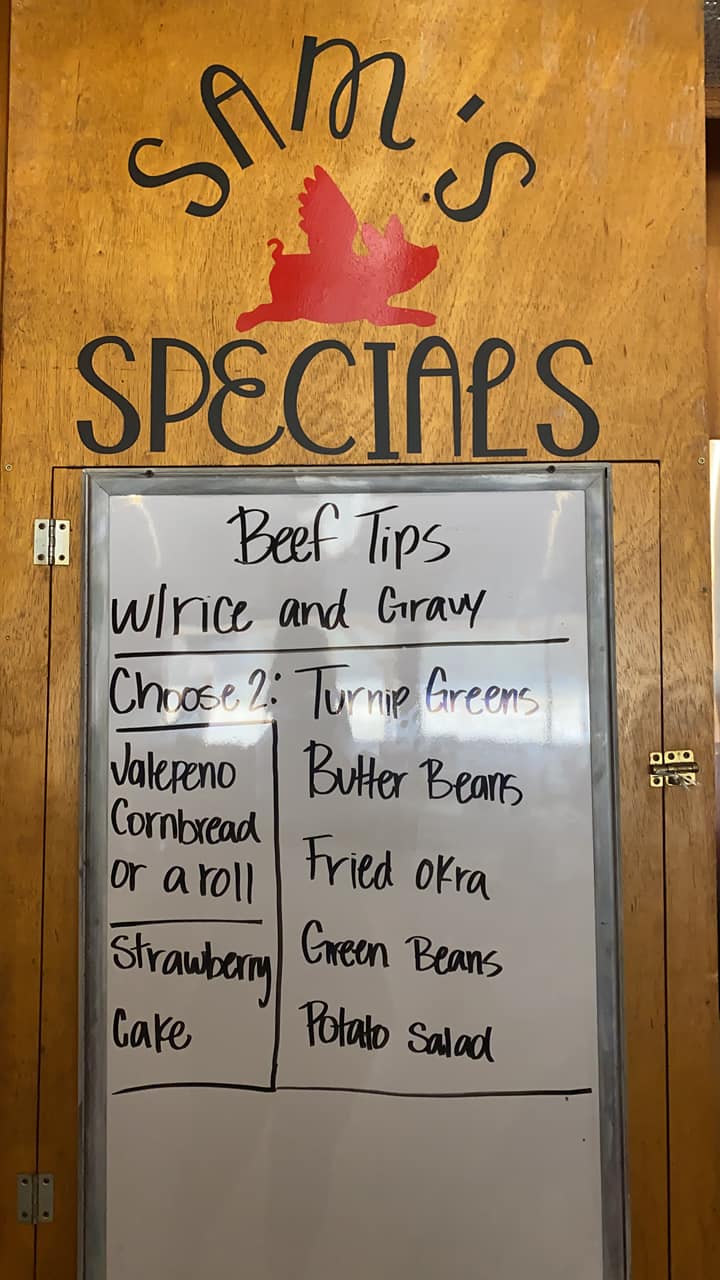 SAM'S
SPECIALS
Beef Tips
w/rice and Gravy
Choose 2:
Turnip Greens
Butter Beans
Fried okra
Green Beans
Potato Salad
Jalepeno
Cornbread
or a roll
Strawberry
Cake